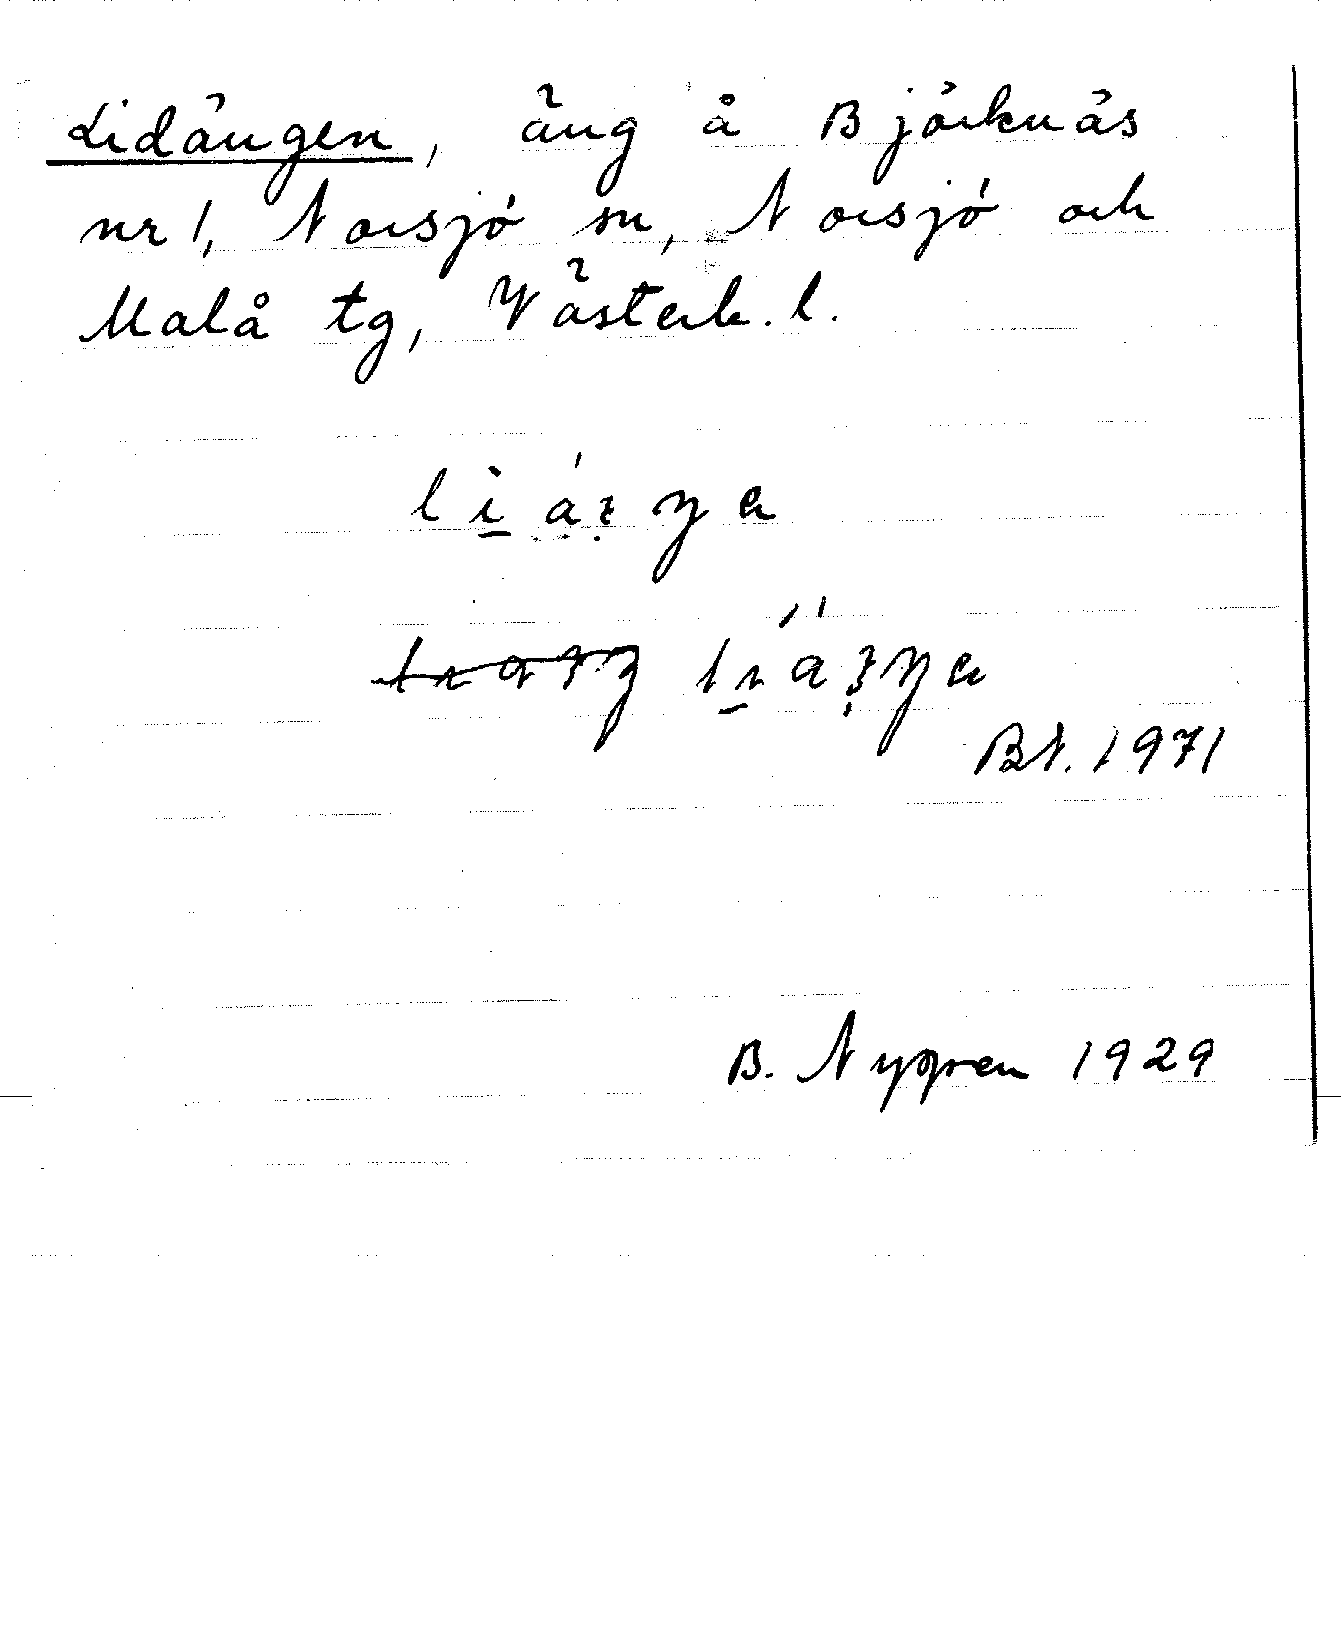 Lidängen, äng å Björknäs
nr 1, Norsjö sn, Norsjö och
Malå tg, Västerb. l.
Bt. 1971
B. Nygren 1929